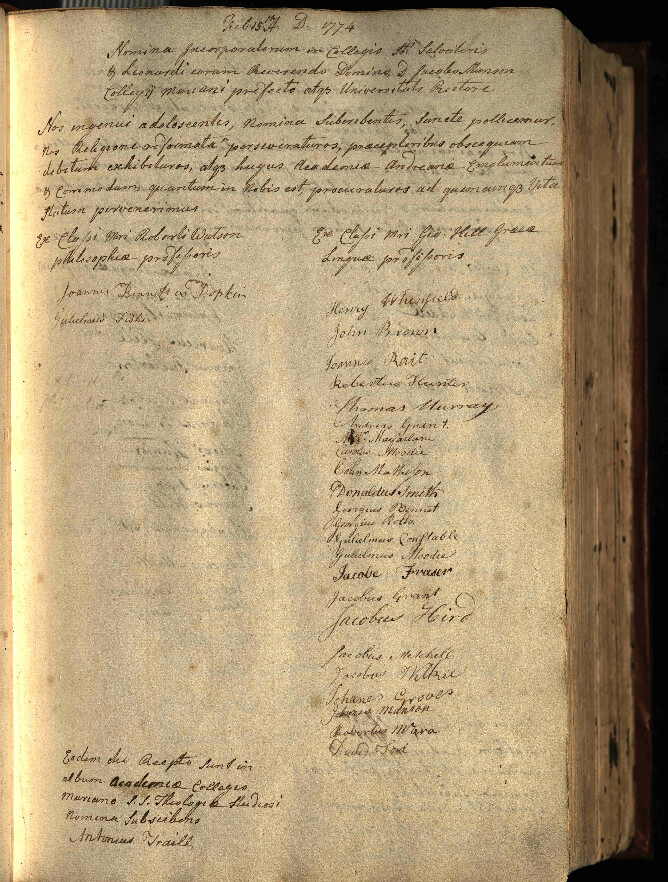 Feb 15th A. D. 1774
Nomina Incorporatorum in Collegio Sti Salvatoris
& Leonardi coram Reverendo Domino, D. Jacobo Murison
Collegij Mariani præfecto atq3 Universitatis Rectore
Nos ingenui adolescentes, Nomina Subscribentes, Sancte pollicemur,
nos Religione reformata perseveraturos, præceptoribus obsequium
debitum exhibituros, atq3 hujus Academiæ Andreanæ Emolumentum
& Commodum, quantum in Nobis est, procuraturos ad quemcunq3 Vitæ
Statum pervenerimus
Ex Classi Mri Roberti Watson
philosophiæ professoris
Joannes Bennet Popkin
Gulielmus Fisher
Ex Classi Mri Geo: Hill Græcæ
Linguæ professoris
Henry Whinfield
John Brown
Joannes Rait
Robertus Hunter
Thomas Murray
Andreas Grant
Macfarlane
Carolus Moodie
Colin Matheson
Donaldus Smith
Georgius Dennet
Georgius Rollo
Gulielmus Constable
Gulielmus Moodie
Jacobe Fraser
Jacobus Grant
Jacobus Hird
Jacobus Mitchell
Jacobus Wilkie
Johanes Groves
Joannes Manson
Robertus
David Tod
Eodem die Recepti sunt in
album Academiæ Collegio
Mariano S.S. Theologiæ Studiosi
Nomina Subscribens
Antonius Traill